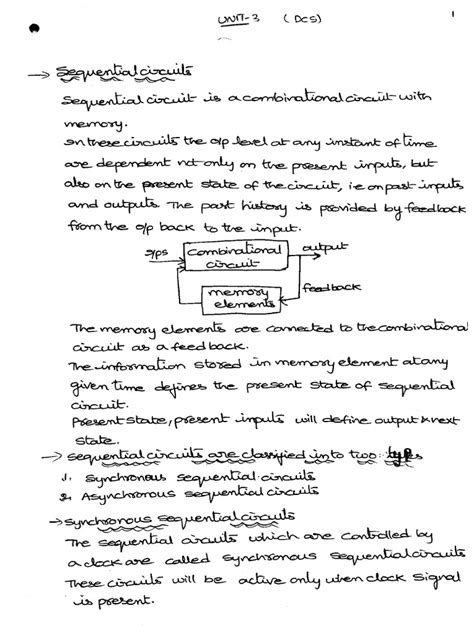 UNIT-3 (DCS)
1
→ Sequential circuits
Sequential circuit is a combinational circuit with
memory.
In these circuits the o/p level at any instant of time
are dependent not only on the present inputs, but
also on the present state of the circuit, ie on past inputs
and outputs. The part history is provided by feedback
from the o/p back to the input.
I/ps
combinational
circuit
output
memory
elements
feedback
The memory elements are connected to the combinational
circuit as a feedback.
The information stored in memory element at any
given time defines the present state of sequential
circuit.
Present state, present inputs will define output & next
state.
→ Sequential circuits are classified into two types
1. Synchronous sequential circuits
2. Asynchronous sequential circuits
→ Synchronous sequential circuits
The sequential circuits which are controlled by
a clock are called synchronous sequential circuits
These circuits will be active only when clock signal
is present.